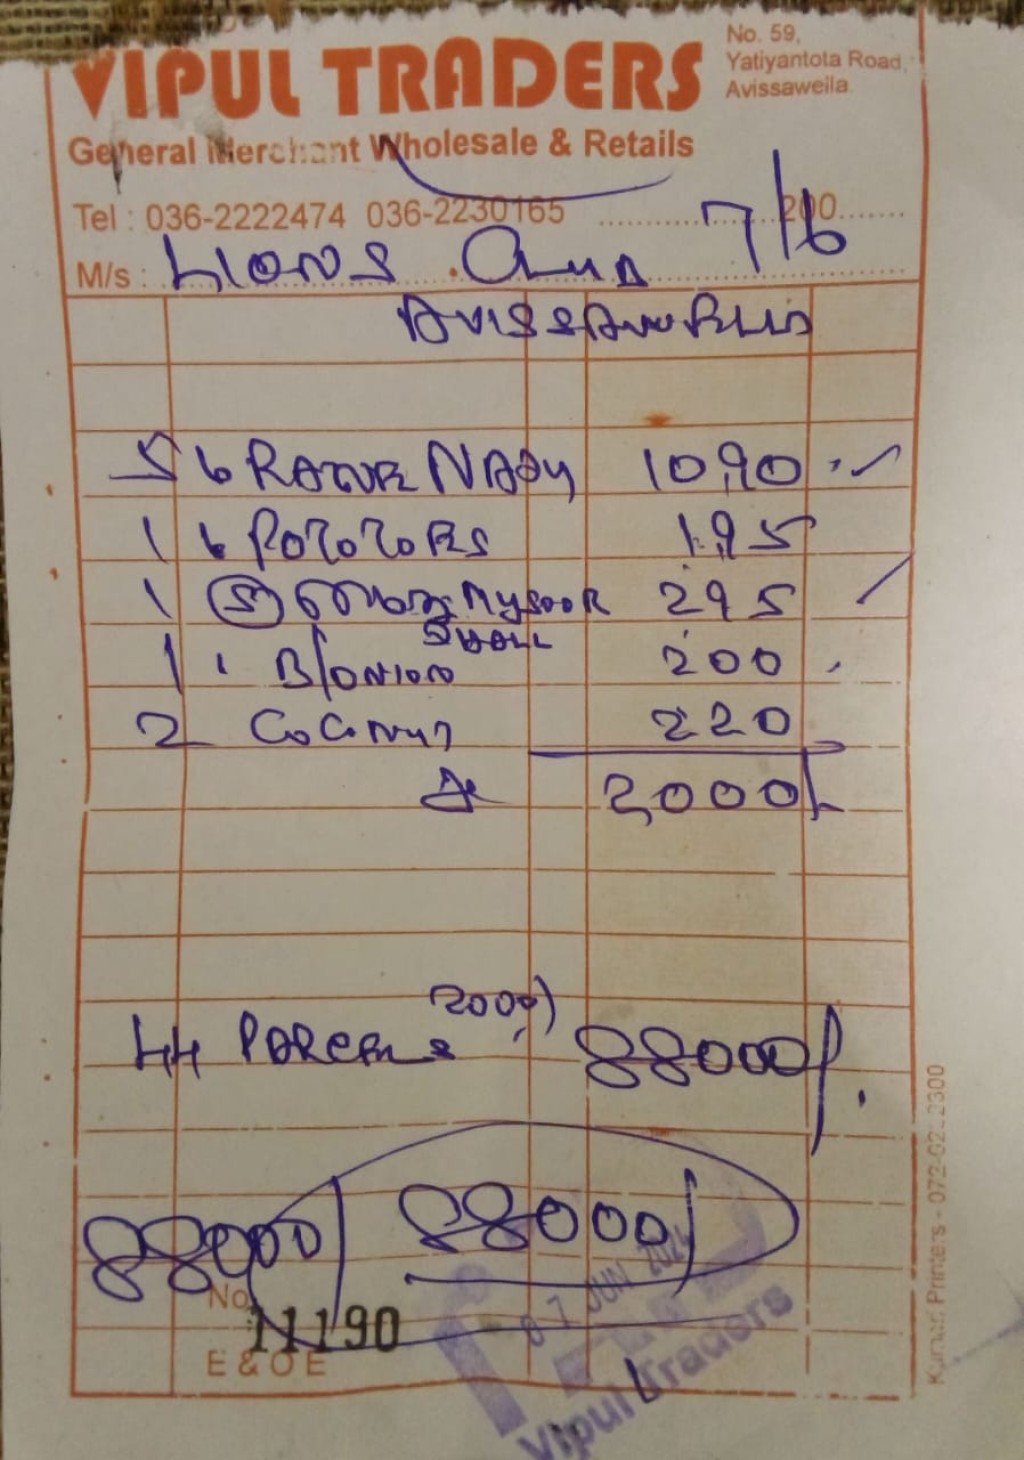 VIPUL TRADERS
No. 59,
Yatiyantota Road,
Avissawella.
General Merchant Wholesale & Retails
Tel : 036-2222474 036-2230165 ............200.......
7/6
M/s : LIONS CLUB
AVISSAWELLA
5 k RATHR NADU 1090
1 k POTOTOES 195
1 MYSOOR 295
DHALL
1 B/ONION 200
2 COCONUT 220
2000/-
44 PARCELS 2000/ 88000/.
88000/ 88000/
No 11190
E & O E
07 JUN 2024
PAID
Vipul Traders